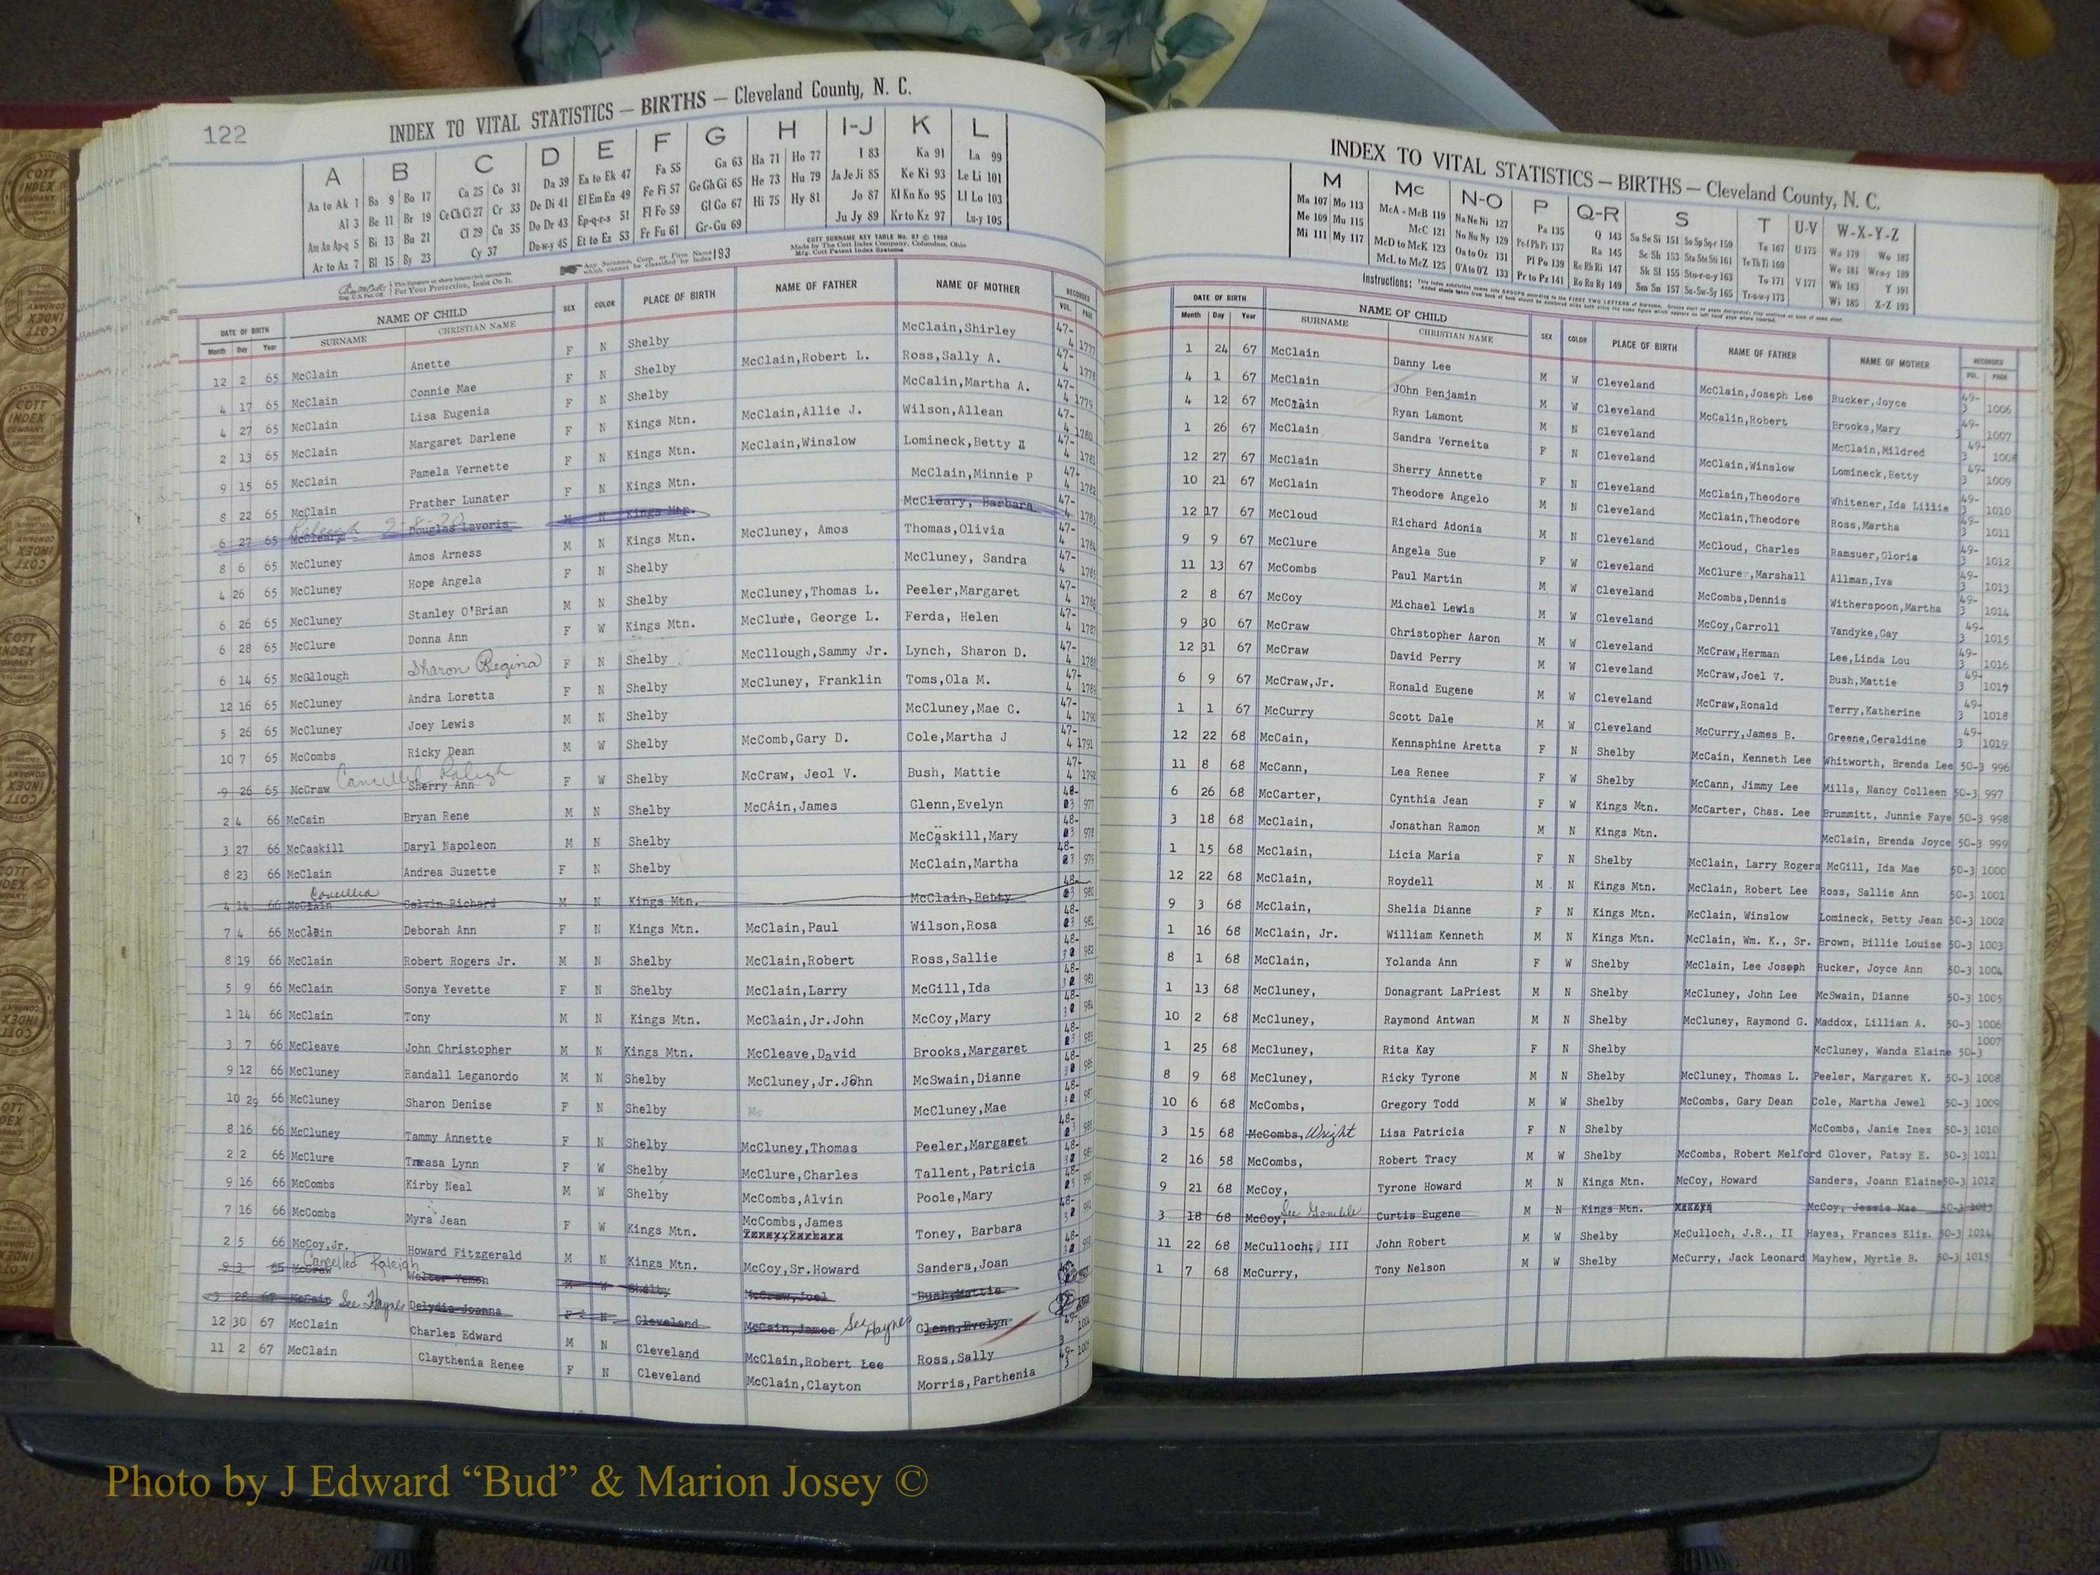 122
INDEX TO VITAL STATISTICS — BIRTHS — Cleveland County, N. C.
A B C D E F G H I-J K L
Aa to Ak 1 Ba 9 Bo 17 Ca 25 Co 31 Da 39 Ea to Ek 47 Fa 55 Ga 63 Ha 71 Ho 77 I 83 Ka 91 La 99
Al 3 Be 11 Br 19 Ce Ch Ci 27 Cr 33 De Di 41 El Em En 49 Fe Fi 57 Ge Gh Gi 65 He 73 Hu 79 Ja Je Ji 85 Ke Ki 93 Le Li 101
Am An Ap-q 5 Bi 13 Bu 21 Cl 29 Cu 35 Do Dr 43 Ep-q-r-s 51 Fl Fo 59 Gl Go 67 Hi 75 Hy 81 Jo 87 Kl Kn Ko 95 Ll Lo 103
Ar to Az 7 Bl 15 By 23 Cy 37 Du-w-y 45 Et to Ez 53 Fr Fu 61 Gr-Gu 69 Ju Jy 89 Kr to Kz 97 Lu-y 105
For Your Protection, Insist On It.
Any Surname, Corp. or Firm Name which cannot be classified by Index 193
COTT SURNAME KEY TABLE No. 87 © 1960
Made by The Cott Index Company, Columbus, Ohio
DATE OF BIRTH NAME OF CHILD SEX COLOR PLACE OF BIRTH NAME OF FATHER NAME OF MOTHER RECORDED
Month Day Year SURNAME CHRISTIAN NAME VOL. PAGE
12 2 65 McClain Anette F N Shelby McClain,Shirley 47-4 1777
4 17 65 McClain Connie Mae F N Shelby McClain,Robert L. Ross,Sally A. 47-4 1778
4 27 65 McClain Lisa Eugenia F N Shelby McCalin,Martha A. 47-4 1779
2 13 65 McClain Margaret Darlene F N Kings Mtn. McClain,Allie J. Wilson,Allean 47-4 1780
9 15 65 McClain Pamela Vernette F N Kings Mtn. McClain,Winslow Lomineck,Betty 47-4 1781
8 22 65 McClain Prather Lunater F N Kings Mtn. McClain,Minnie P 47-4 1782
6 27 65 McCleary Raleigh Douglas Lavoris M N Kings Mtn. McCleary, Barbara 47-4 1783
8 6 65 McCluney Amos Arness M N Kings Mtn. McCluney, Amos Thomas,Olivia 47-4 1784
4 26 65 McCluney Hope Angela F N Shelby McCluney, Sandra 47-4 1785
6 26 65 McCluney Stanley O'Brian M N Shelby McCluney,Thomas L. Peeler,Margaret 47-4 1786
6 28 65 McClure Donna Ann F W Kings Mtn. McClure, George L. Ferda, Helen 47-4 1787
6 14 65 McGllough Sharon Regina F N Shelby McCllough,Sammy Jr. Lynch, Sharon D. 47-4 1788
12 16 65 McCluney Andra Loretta F N Shelby McCluney, Franklin Toms,Ola M. 47-4 1789
5 26 65 McCluney Joey Lewis M N Shelby McCluney,Mae C. 47-4 1790
10 7 65 McCombs Ricky Dean M W Shelby McComb,Gary D. Cole,Martha J 47-4 1791
9 26 65 McCraw Cancelled Raleigh Sherry Ann F W Shelby McCraw, Jeol V. Bush, Mattie 47-4 1792
2 4 66 McCain Bryan Rene M N Shelby McCAin,James Glenn,Evelyn 48-3 977
3 27 66 McCaskill Daryl Napoleon M N Shelby McCaskill,Mary 48-3 978
8 23 66 McClain Andrea Suzette F N Shelby McClain,Martha 48-3 979
4 14 66 McClain Cancelled Calvin Richard M N Kings Mtn. McClain,Betty 48-3 980
7 4 66 McClain Deborah Ann F N Kings Mtn. McClain,Paul Wilson,Rosa 48-3 981
8 19 66 McClain Robert Rogers Jr. M N Shelby McClain,Robert Ross,Sallie 48-3 982
5 9 66 McClain Sonya Yevette F N Shelby McClain,Larry McGill,Ida 48-3 983
1 14 66 McClain Tony M N Kings Mtn. McClain,Jr.John McCoy,Mary 48-3 984
3 7 66 McCleave John Christopher M N Kings Mtn. McCleave,David Brooks,Margaret 48-3 985
9 12 66 McCluney Randall Leganordo M N Shelby McCluney,Jr.John McSwain,Dianne 48-3 986
10 29 66 McCluney Sharon Denise F N Shelby McCluney,Mae 48-3 987
8 16 66 McCluney Tammy Annette F N Shelby McCluney,Thomas Peeler,Margaret 48-3 988
2 2 66 McClure Treasa Lynn F W Shelby McClure,Charles Tallent,Patricia 48-3 989
9 16 66 McCombs Kirby Neal M W Shelby McCombs,Alvin Poole,Mary 48-3 990
7 16 66 McCombs Myra Jean F W Kings Mtn. McCombs,James Toney, Barbara 48-3 991
2 5 66 McCoy,Jr. Howard Fitzgerald M N Kings Mtn. McCoy,Sr.Howard Sanders,Joan 48-3 992
9 3 66 McCraw Cancelled Raleigh Walter Vemon M W Shelby McCraw,Joel Bush,Mattie
3 28 67 McCain See Haynes Delydia Joanna F N Cleveland McCain,James See Haynes Glenn,Evelyn
12 30 67 McClain Charles Edward M N Cleveland McClain,Robert Lee Ross,Sally 49-3 1004
11 2 67 McClain Claythenia Renee F N Cleveland McClain,Clayton Morris,Parthenia 49-3 1005
INDEX TO VITAL STATISTICS — BIRTHS — Cleveland County, N. C.
M Mc N-O P Q-R S T U-V W-X-Y-Z
Ma 107 Mo 113 McA - McB 119 Na Ne Ni 127 Pa 135 Q 143 Sa Se Si 151 So Sp Sq-r 159 Ta 167 U 175 Wa 179 Wo 187
Me 109 Mu 115 McC 121 No Nu Ny 129 Pe-f Ph Pi 137 Ra 145 Sc Sh 153 Sta Ste Sti 161 Te Th Ti 169 We 181 Wr-u-y 189
Mi 111 My 117 McD to McK 123 Oa to Oz 131 Pl Po 139 Re Rh Ri 147 Sk Sl 155 Sto-r-u-y 163 To 171 V 177 Wh 183 Y 191
McL to McZ 125 O'A to O'Z 133 Pr to Pz 141 Ro Ru Ry 149 Sm Sn 157 Su-Sw-Sy 165 Tr-u-w-y 173 Wi 185 X-Z 193
Instructions:
DATE OF BIRTH NAME OF CHILD SEX COLOR PLACE OF BIRTH NAME OF FATHER NAME OF MOTHER RECORDED
Month Day Year SURNAME CHRISTIAN NAME VOL. PAGE
1 24 67 McClain Danny Lee M W Cleveland McClain,Joseph Lee Rucker,Joyce 49-3 1006
4 1 67 McClain JOhn Benjamin M W Cleveland McCalin,Robert Brooks,Mary 49-3 1007
4 12 67 McClain Ryan Lamont M N Cleveland McClain,Mildred 49-3 1008
1 26 67 McClain Sandra Verneita F N Cleveland McClain,Winslow Lomineck,Betty 49-3 1009
12 27 67 McClain Sherry Annette F N Cleveland McClain,Theodore Whitener,Ida Lillie 49-3 1010
10 21 67 McClain Theodore Angelo M N Cleveland McClain,Theodore Ross,Martha 49-3 1011
12 17 67 McCloud Richard Adonia M N Cleveland McCloud, Charles Ramsuer,Gloria 49-3 1012
9 9 67 McClure Angela Sue F W Cleveland McClure,Marshall Allman,Iva 49-3 1013
11 13 67 McCombs Paul Martin M W Cleveland McCombs,Dennis Witherspoon,Martha 49-3 1014
2 8 67 McCoy Michael Lewis M W Cleveland McCoy,Carroll Vandyke,Gay 49-3 1015
9 30 67 McCraw Christopher Aaron M W Cleveland McCraw,Herman Lee,Linda Lou 49-3 1016
12 31 67 McCraw David Perry M W Cleveland McCraw,Joel V. Bush,Mattie 49-3 1017
6 9 67 McCraw,Jr. Ronald Eugene M W Cleveland McCraw,Ronald Terry,Katherine 49-3 1018
1 1 67 McCurry Scott Dale M W Cleveland McCurry,James B. Greene,Geraldine 49-3 1019
12 22 68 McCain, Kennaphine Aretta F N Shelby McCain, Kenneth Lee Whitworth, Brenda Lee 50-3 996
11 8 68 McCann, Lea Renee F W Shelby McCann, Jimmy Lee Mills, Nancy Colleen 50-3 997
6 26 68 McCarter, Cynthia Jean F W Kings Mtn. McCarter, Chas. Lee Brummitt, Junnie Faye 50-3 998
3 18 68 McClain, Jonathan Ramon M N Kings Mtn. McClain, Brenda Joyce 50-3 999
1 15 68 McClain, Licia Maria F N Shelby McClain, Larry Rogers McGill, Ida Mae 50-3 1000
12 22 68 McClain, Roydell M N Kings Mtn. McClain, Robert Lee Ross, Sallie Ann 50-3 1001
9 3 68 McClain, Shelia Dianne F N Kings Mtn. McClain, Winslow Lomineck, Betty Jean 50-3 1002
1 16 68 McClain, Jr. William Kenneth M N Kings Mtn. McClain, Wm. K., Sr. Brown, Billie Louise 50-3 1003
8 1 68 McClain, Yolanda Ann F W Shelby McClain, Lee Joseph Rucker, Joyce Ann 50-3 1004
1 13 68 McCluney, Donagrant LaPriest M N Shelby McCluney, John Lee McSwain, Dianne 50-3 1005
10 2 68 McCluney, Raymond Antwan M N Shelby McCluney, Raymond G. Maddox, Lillian A. 50-3 1006
1 25 68 McCluney, Rita Kay F N Shelby McCluney, Wanda Elaine 50-3 1007
8 9 68 McCluney, Ricky Tyrone M N Shelby McCluney, Thomas L. Peeler, Margaret K. 50-3 1008
10 6 68 McCombs, Gregory Todd M W Shelby McCombs, Gary Dean Cole, Martha Jewel 50-3 1009
3 15 68 McCombs, Wright Lisa Patricia F N Shelby McCombs, Janie Inez 50-3 1010
2 16 58 McCombs, Robert Tracy M W Shelby McCombs, Robert Melford Glover, Patsy E. 50-3 1011
9 21 68 McCoy, Tyrone Howard M N Kings Mtn. McCoy, Howard Sanders, Joann Elaine 50-3 1012
3 18 68 McCoy, See Gamble Curtis Eugene M N Kings Mtn. McCoy, Jessie Mae 50-3 1013
11 22 68 McCulloch, III John Robert M W Shelby McCulloch, J.R., II Hayes, Frances Eliz. 50-3 1014
1 7 68 McCurry, Tony Nelson M W Shelby McCurry, Jack Leonard Mayhew, Myrtle B. 50-3 1015
Photo by J Edward “Bud” & Marion Josey ©